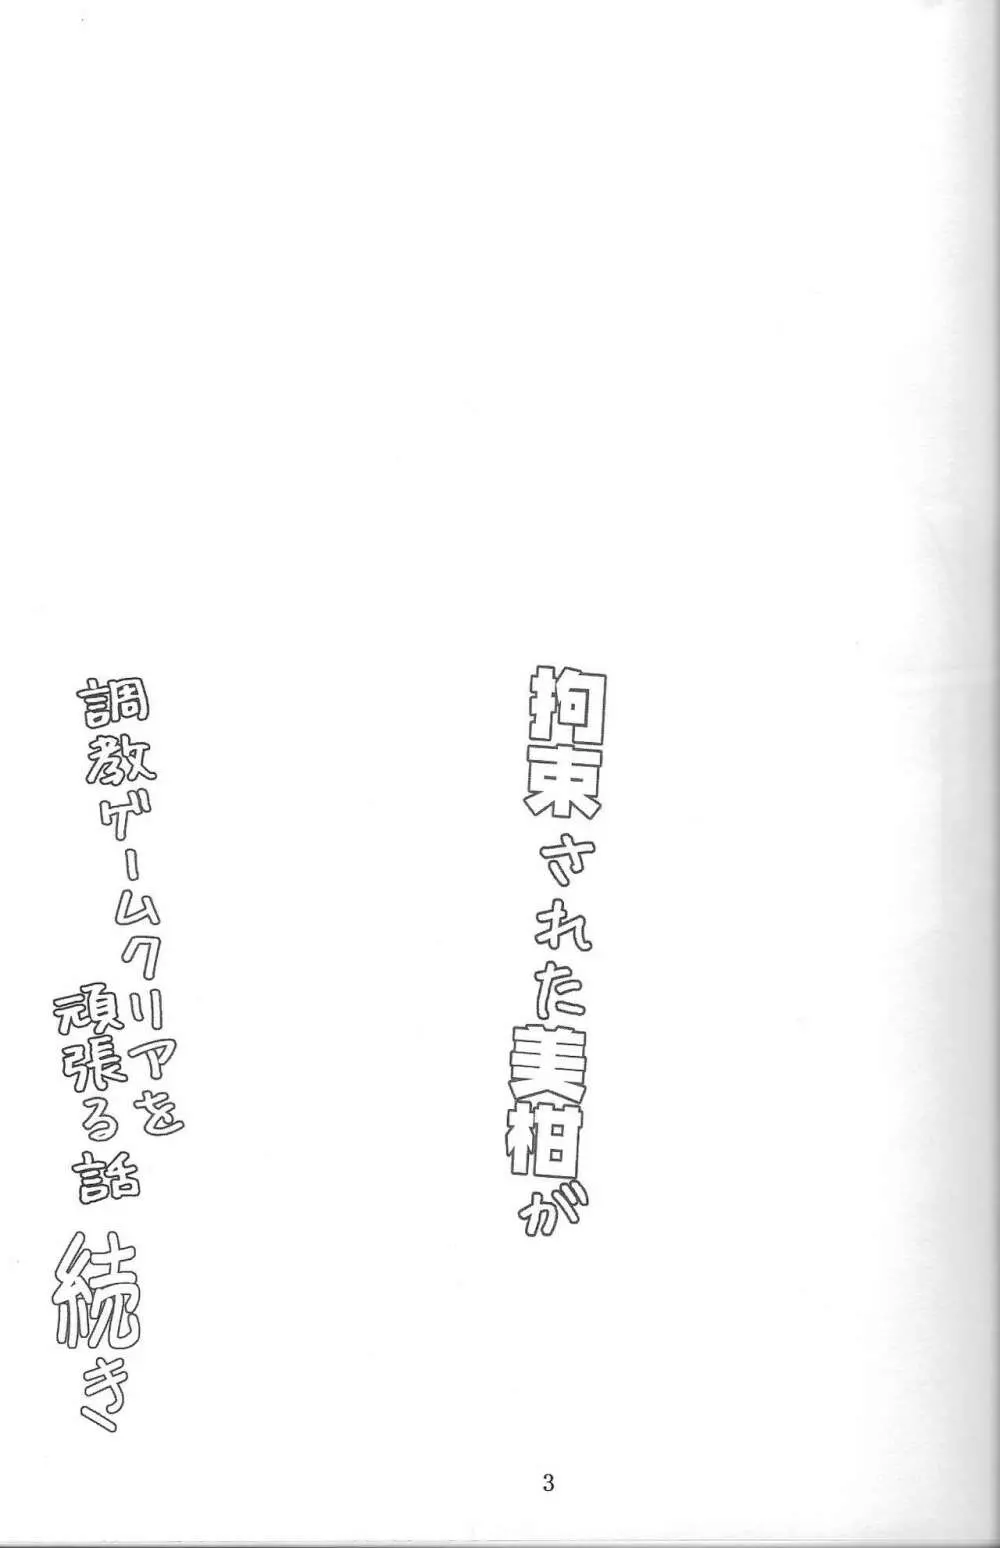 拘束された美柑が
調教ゲームクリアを
頑張る話 続き
3